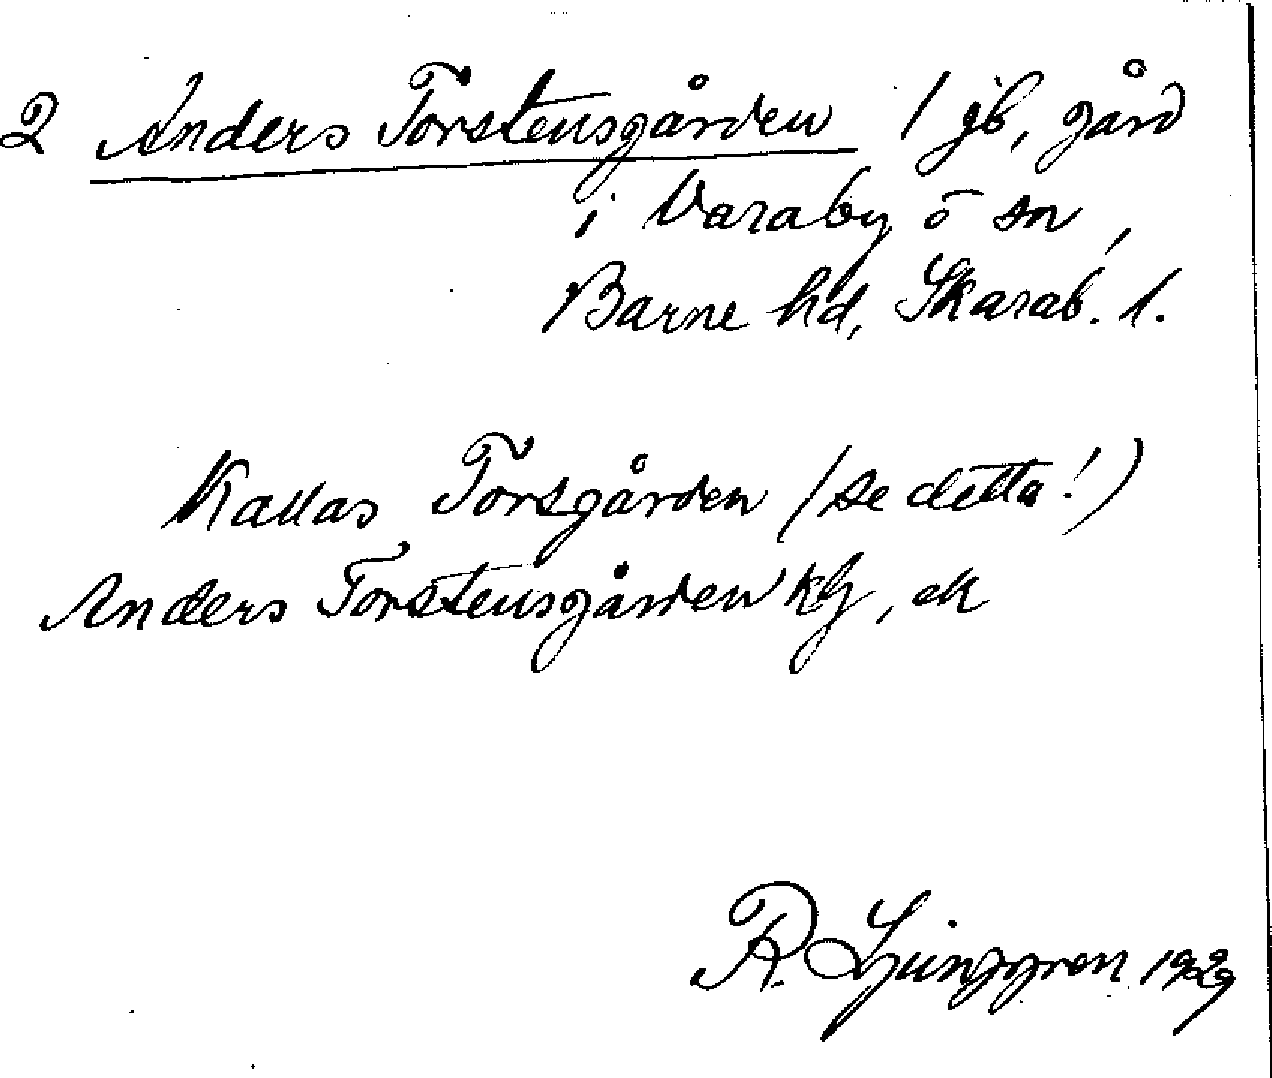 2 Anders Torstensgården 1 jb, gård
i Varaby o sn,
Barne hd, Skarab. l.
Kallas Torsgården (se detta!)
Anders Torstensgården kg, ek
R. Ljunggren 1929